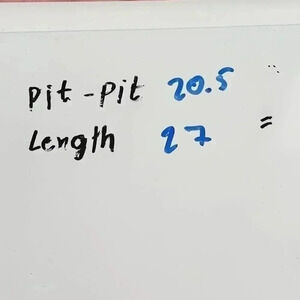 pit-pit 20.5
Length 27 =